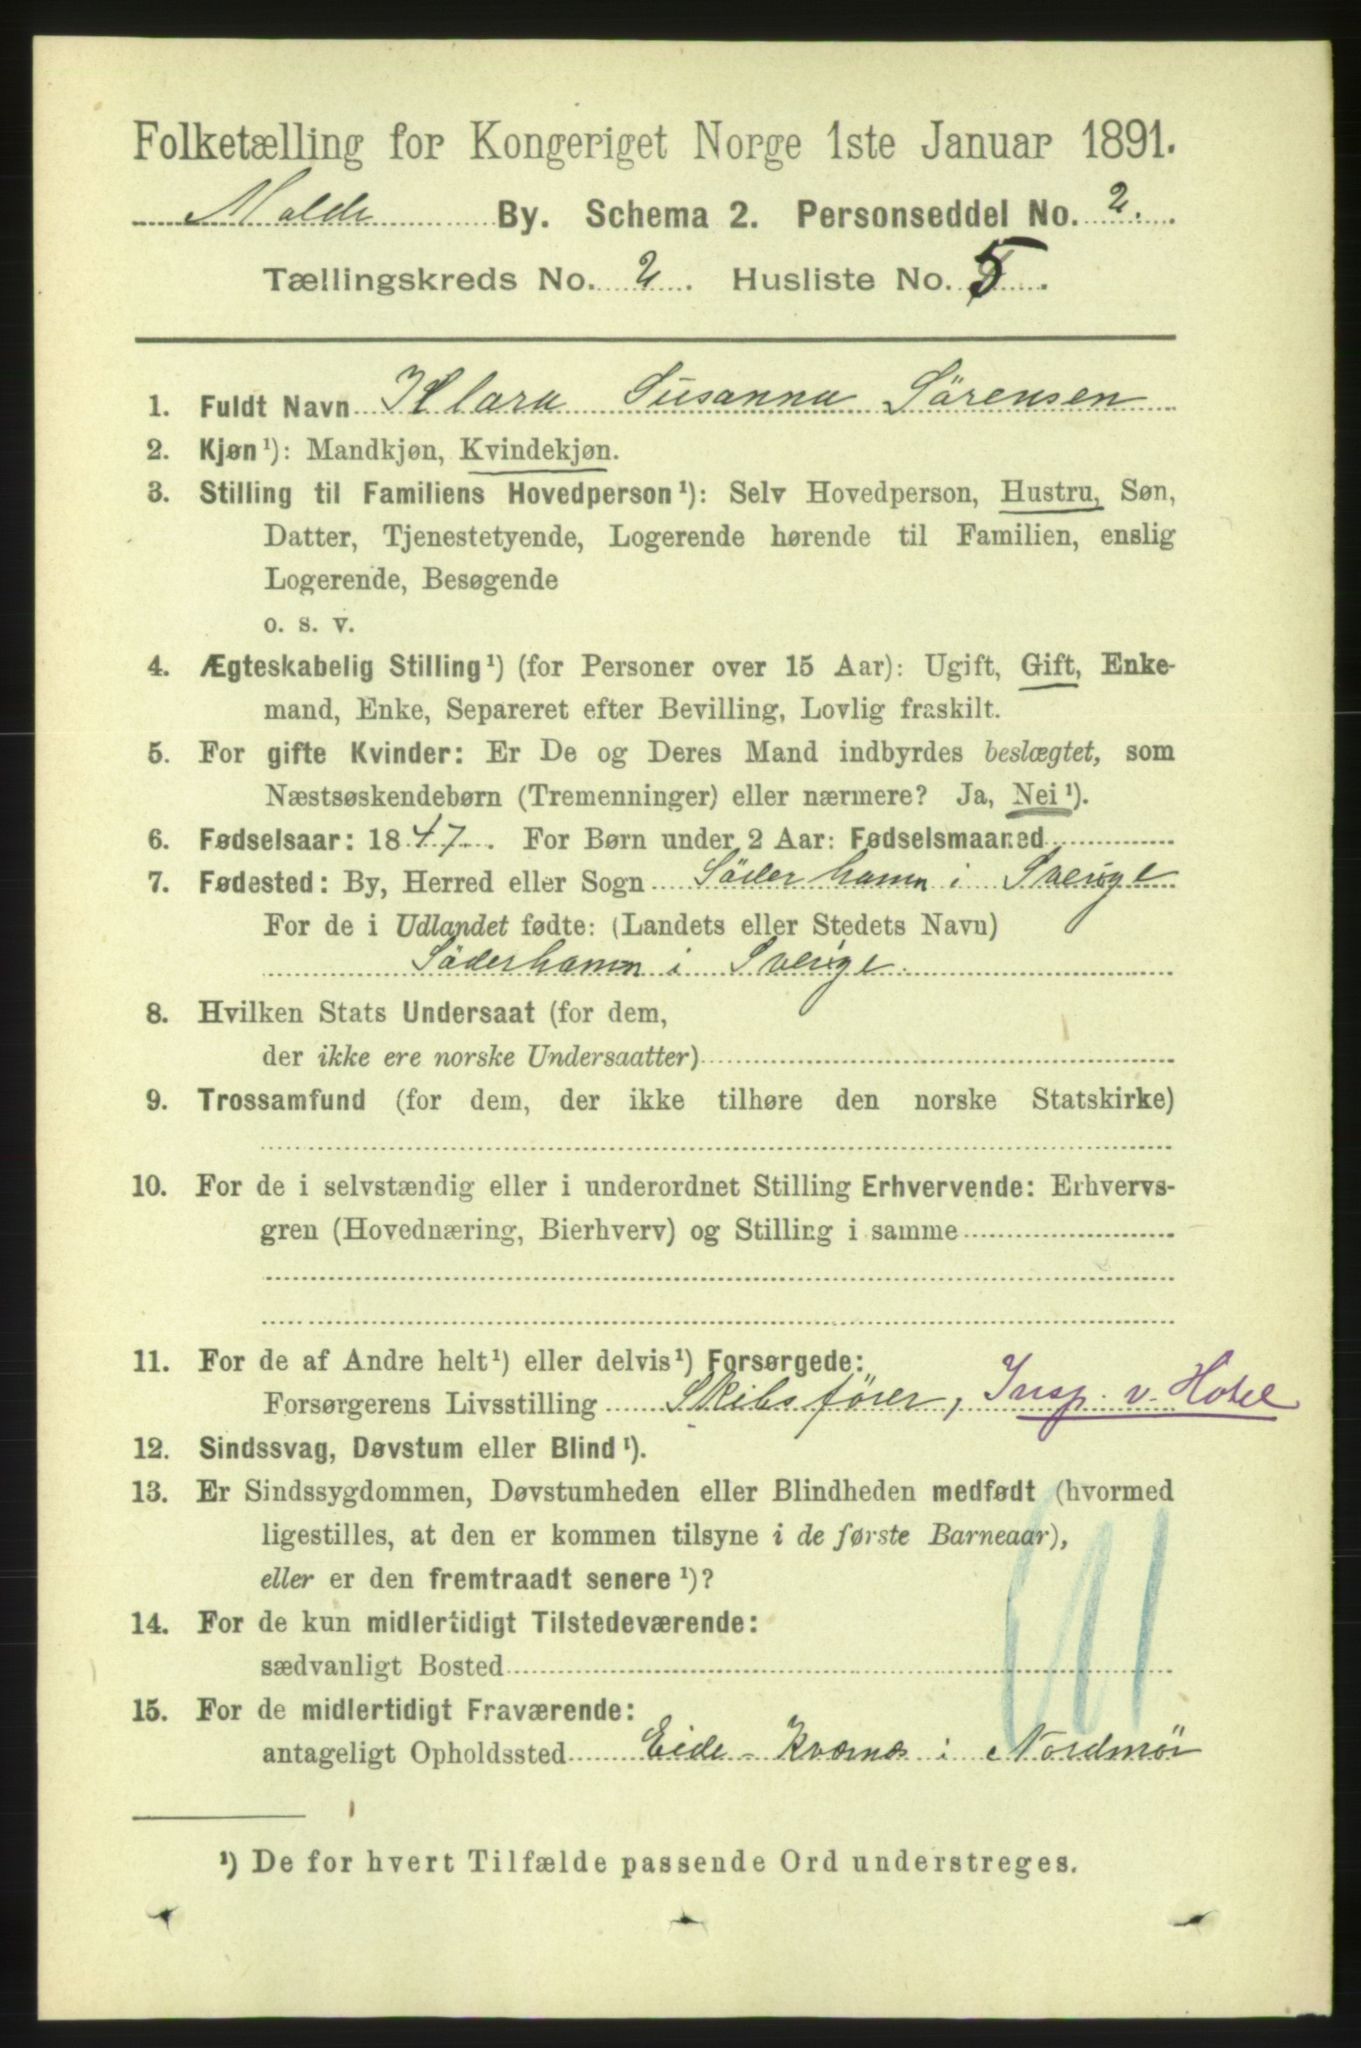 Folketælling for Kongeriget Norge 1ste Januar 1891.
Molde By. Schema 2. Personseddel No. 2.
Tællingskreds No. 2. Husliste No. 5.
1. Fuldt Navn Klara Susanna Sörensen
2. Kjøn¹): Mandkjøn, Kvindekjøn.
3. Stilling til Familiens Hovedperson¹): Selv Hovedperson, Hustru, Søn,
Datter, Tjenestetyende, Logerende hørende til Familien, enslig
Logerende, Besøgende
o. s. v.
4. Ægteskabelig Stilling¹) (for Personer over 15 Aar): Ugift, Gift, Enke-
mand, Enke, Separeret efter Bevilling, Lovlig fraskilt.
5. For gifte Kvinder: Er De og Deres Mand indbyrdes beslægtet, som
Næstsøskendebørn (Tremenninger) eller nærmere? Ja, Nei¹).
6. Fødselsaar: 1847. For Børn under 2 Aar: Fødselsmaaned
7. Fødested: By, Herred eller Sogn Söderhamn i Sverige
For de i Udlandet fødte: (Landets eller Stedets Navn)
Söderhamn i Sverige.
8. Hvilken Stats Undersaat (for dem,
der ikke ere norske Undersaatter)
9. Trossamfund (for dem, der ikke tilhøre den norske Statskirke)
10. For de i selvstændig eller i underordnet Stilling Erhvervende: Erhvervs-
gren (Hovednæring, Bierhverv) og Stilling i samme
11. For de af Andre helt¹) eller delvis¹) Forsørgede:
Forsørgerens Livsstilling Skibsfører, Insp. v. Hotel
12. Sindssvag, Døvstum eller Blind¹).
13. Er Sindssygdommen, Døvstumheden eller Blindheden medfødt (hvormed
ligestilles, at den er kommen tilsyne i de første Barneaar),
eller er den fremtraadt senere¹)?
14. For de kun midlertidigt Tilstedeværende:
sædvanligt Bosted
15. For de midlertidigt Fraværende:
antageligt Opholdssted Eide - Kværnæs i Nordmör
¹) De for hvert Tilfælde passende Ord understreges.